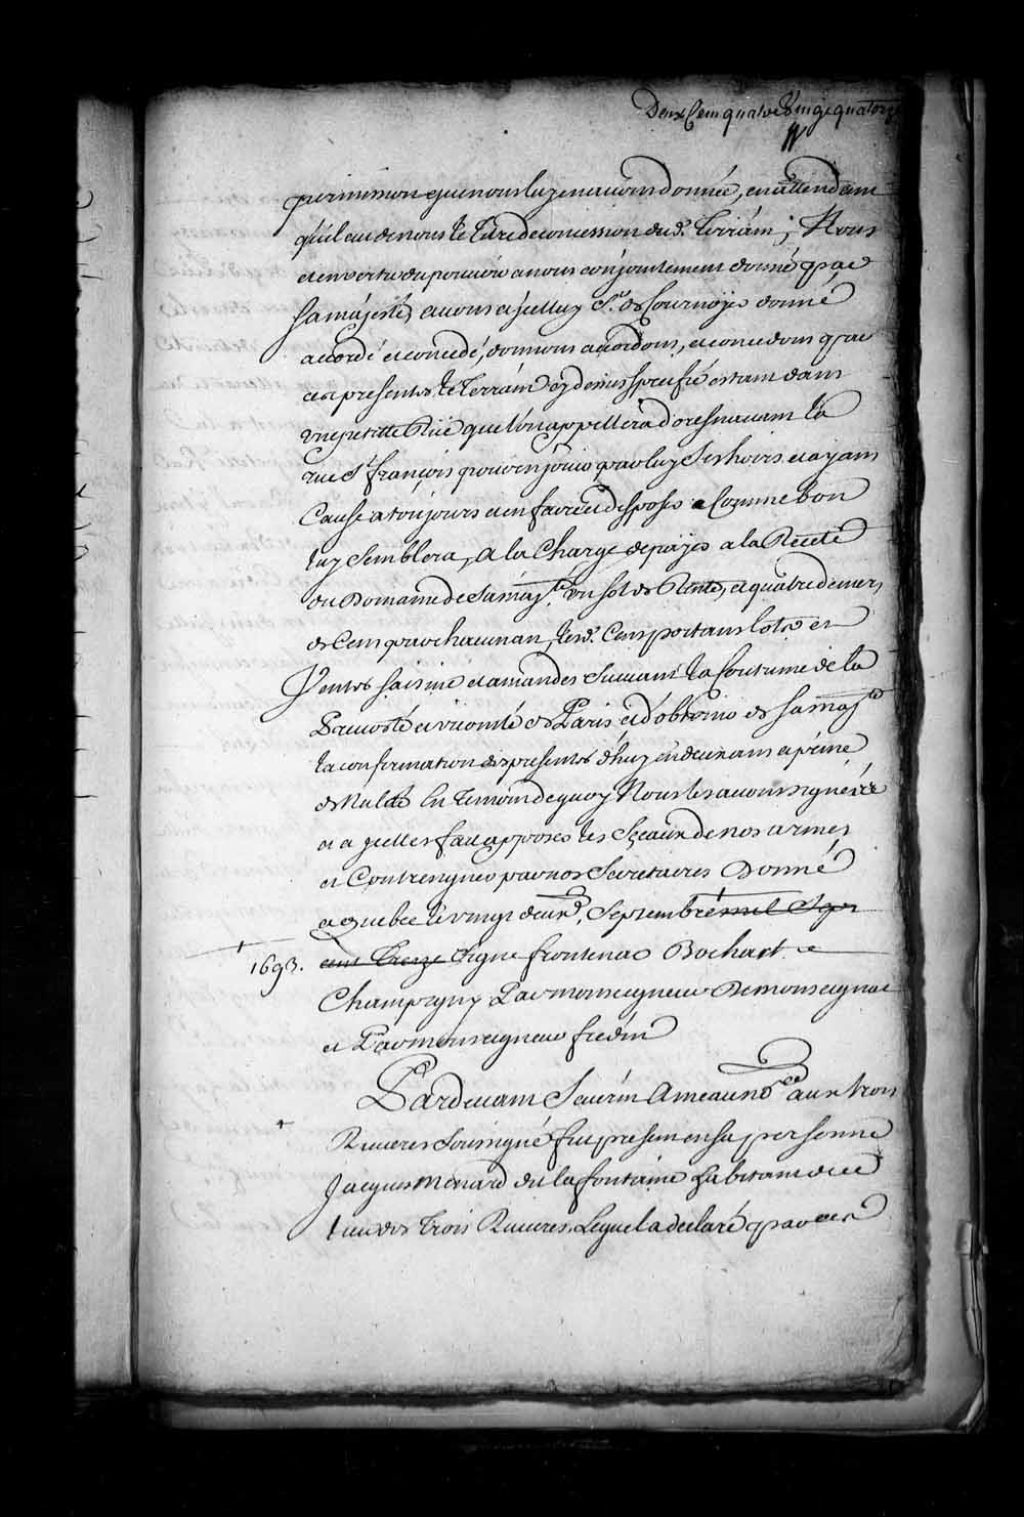 Deux Cent quatre Vingt quatorze
permission que nous luy en avions donnée, en attendant
qu'il eut de nous le titre de concession dud. Terrain; Nous
et en vertu du pouvoir a nous conjointement donné par
sa majesté, avons a jcelluy Sr. de Tournoyer donné
accordé et concedé, donnons accordons, et concedons par
ces presentes le Terrain cy dessus specifié estant dans
une petitte Rüe que l'on appellera d'oresnavant la
rue St françois pour en joüir par luy Ses hoirs et ayans
Cause a toujours et en faire et disposer Comme bon
luy Semblera, a la Charge de payer a la Recete
du Domaine de Sa majté. un sol de Rente, et quatre deniers
de Cens par chacun an, lesd. Cens portans lots et
Ventes saisine et amandes Suivant la Coutume de la
Prevosté et vicomté de Paris et d'obtenir de Sa majté
la confirmation des presentes d'huy en deux ans a peine
de Nulité En Temoin de quoy Nous les avons signées
et a jcelles fait apposer les Sceaux de nos armes
et Contresigner par nos Secretaires Donné
a quebec le vingt deuxe. Septembre mil Sept
1693. cent Treze Signé frontenac Bochart
Champigny Par monseigneur De monseignat
et Par monseigneur fredin
Pardevant Severin Ameau nore. aux trois
Rivieres Soussigné fut present en sa personne
Jacques Menard dit la fontaine habitant du
lieu des trois Rivieres, Lequel a declaré par ces